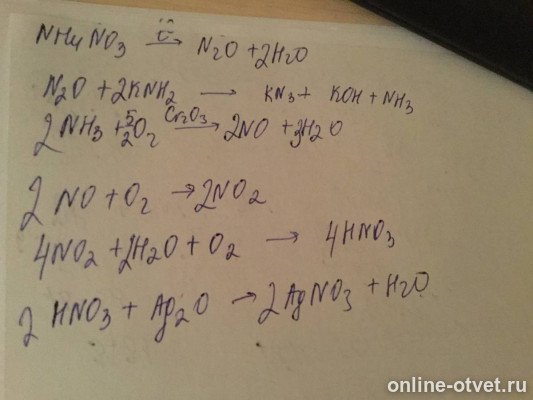 NH4NO3 t°→ N2O + 2H2O
N2O + 2KNH2 → KN3 + KOH + NH3
2NH3 + 5/2O2 Cr2O3→ 2NO + 3H2O
2NO + O2 → 2NO2
4NO2 + 2H2O + O2 → 4HNO3
2HNO3 + Ag2O → 2AgNO3 + H2O
online-otvet.ru